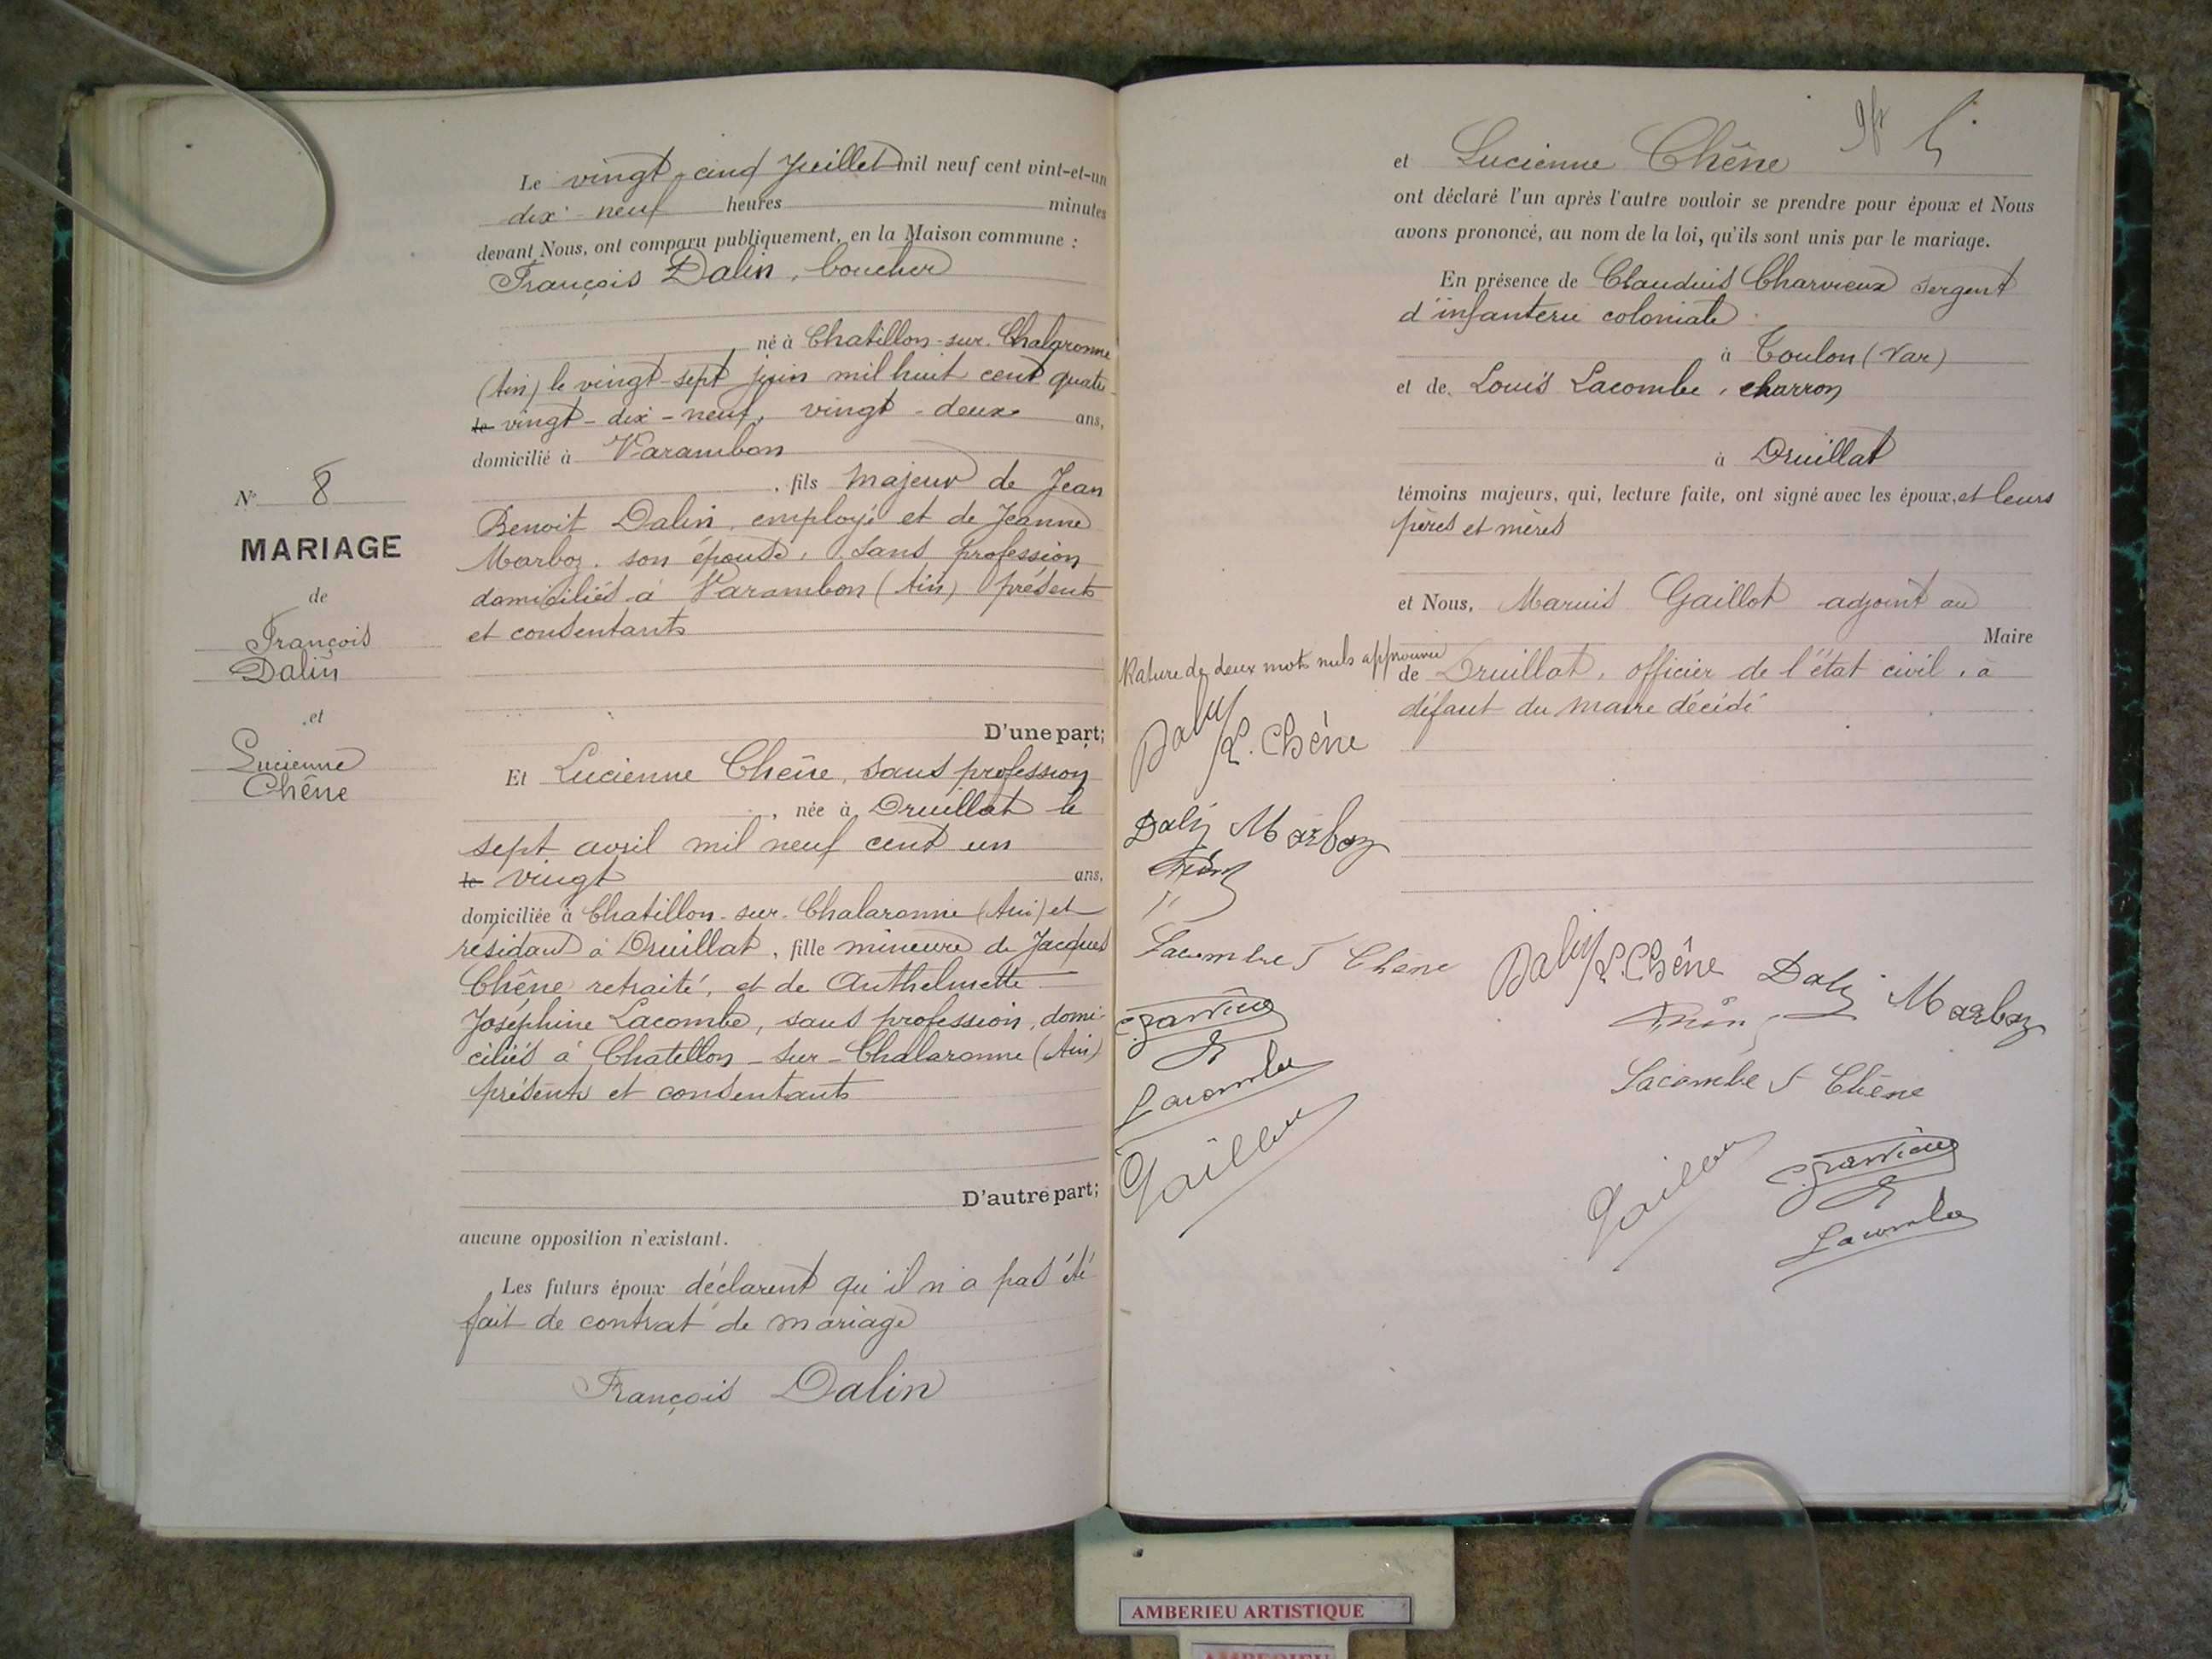 Le vingt-cinq Juillet mil neuf cent vint-et-un
dix-neuf heures minutes
devant Nous, ont comparu publiquement, en la Maison commune :
François Dalin, boucher
né à Chatillon-sur-Chalaronne
(Ain) le vingt-sept juin mil huit cent quatre
le vingt-dix-neuf, vingt-deux ans,
domicilié à Varambon
, fils majeur de Jean
Benoit Dalin, employé et de Jeanne
Marboz, son épouse, sans profession
domiciliés à Varambon (Ain) présents
et consentants
D'une part;
N° 8
MARIAGE
de
François
Dalin
et
Lucienne
Chêne
Et Lucienne Chêne, sans profession
, née à Druillat le
sept avril mil neuf cent un
le vingt ans,
domiciliée à Chatillon-sur-Chalaronne (Ain) et
résidant à Druillat, fille mineure de Jacques
Chêne retraité, et de Anthelmette
Joséphine Lacombe, sans profession, domi-
ciliés à Chatillon-sur-Chalaronne (Ain)
présents et consentants
D'autre part;
aucune opposition n'existant.
Les futurs époux déclarent qu'il n'a pas été
fait de contrat de mariage
François Dalin
et Lucienne Chêne
ont déclaré l'un après l'autre vouloir se prendre pour époux et Nous
avons prononcé, au nom de la loi, qu'ils sont unis par le mariage.
En présence de Claudius Charvieux sergent
d'infanterie coloniale
à Toulon (Var)
et de Louis Lacombe, charron
à Druillat
témoins majeurs, qui, lecture faite, ont signé avec les époux, et leurs
pères et mères
et Nous, Marius Gaillot adjoint au
Maire
de Druillat, officier de l'état civil, à
défaut du maire décédé
Rature de deux mots nuls approuvée
Dalin L. Chêne
Dalin Marboz
Lacombe J Chêne
Lacombe
Dalin L. Chêne Dalin Marboz
Lacombe J Chêne
Lacombe
AMBERIEU ARTISTIQUE
AMBERIEU